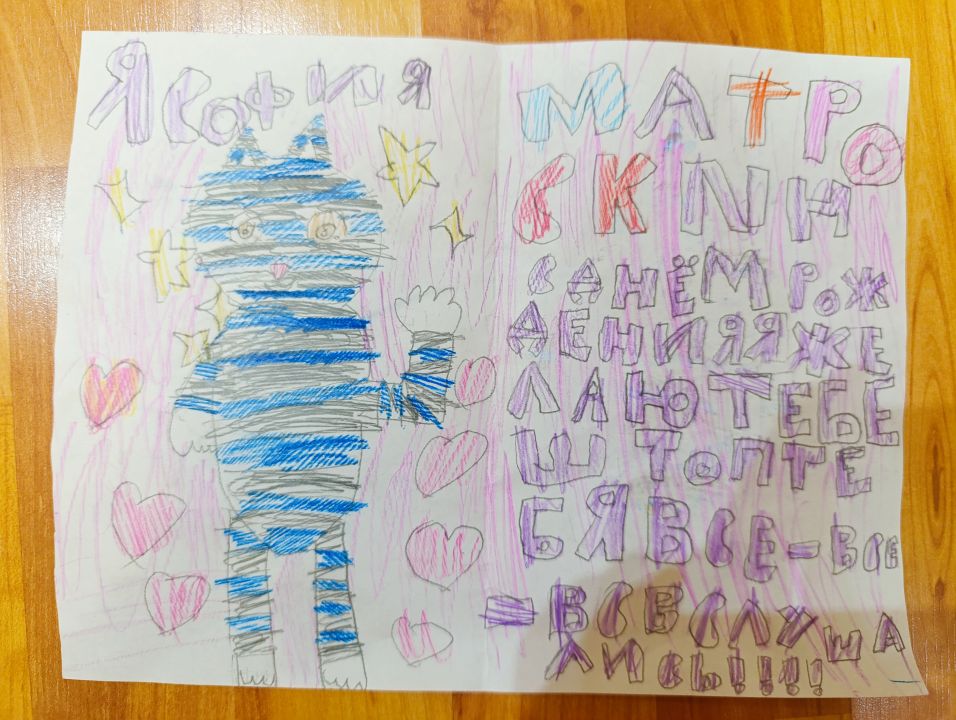 Я СОФИЯ
МАТРО
СКИН
С ДНЁМ РОЖ
ДЕНИЯ Я ЖЕ
ЛАЮ ТЕБЕ
ШТОП ТЕ
БЯ ВСЕ-ВСЕ
-ВСВСЛУША
ЛИСЫ!!!!